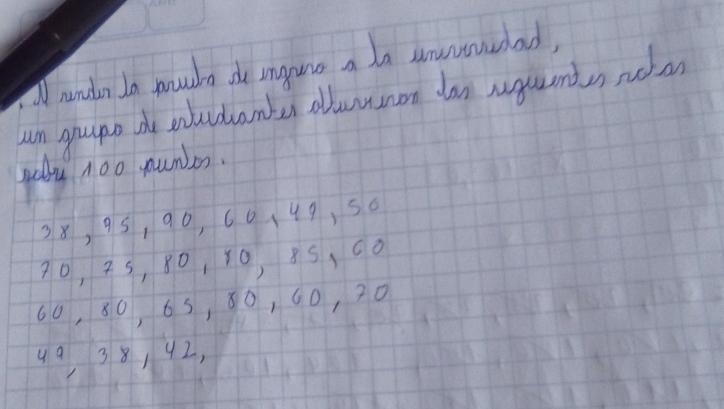 . Al rendir la prueba de ingreso a la universidad,
un grupo de estudiantes obtuvieron las siguientes notas
sobre 100 puntos.
38, 95, 90, 60, 49, 50
70, 75, 80, 80, 85, 60
60, 80, 65, 80, 60, 70
49, 38, 42,